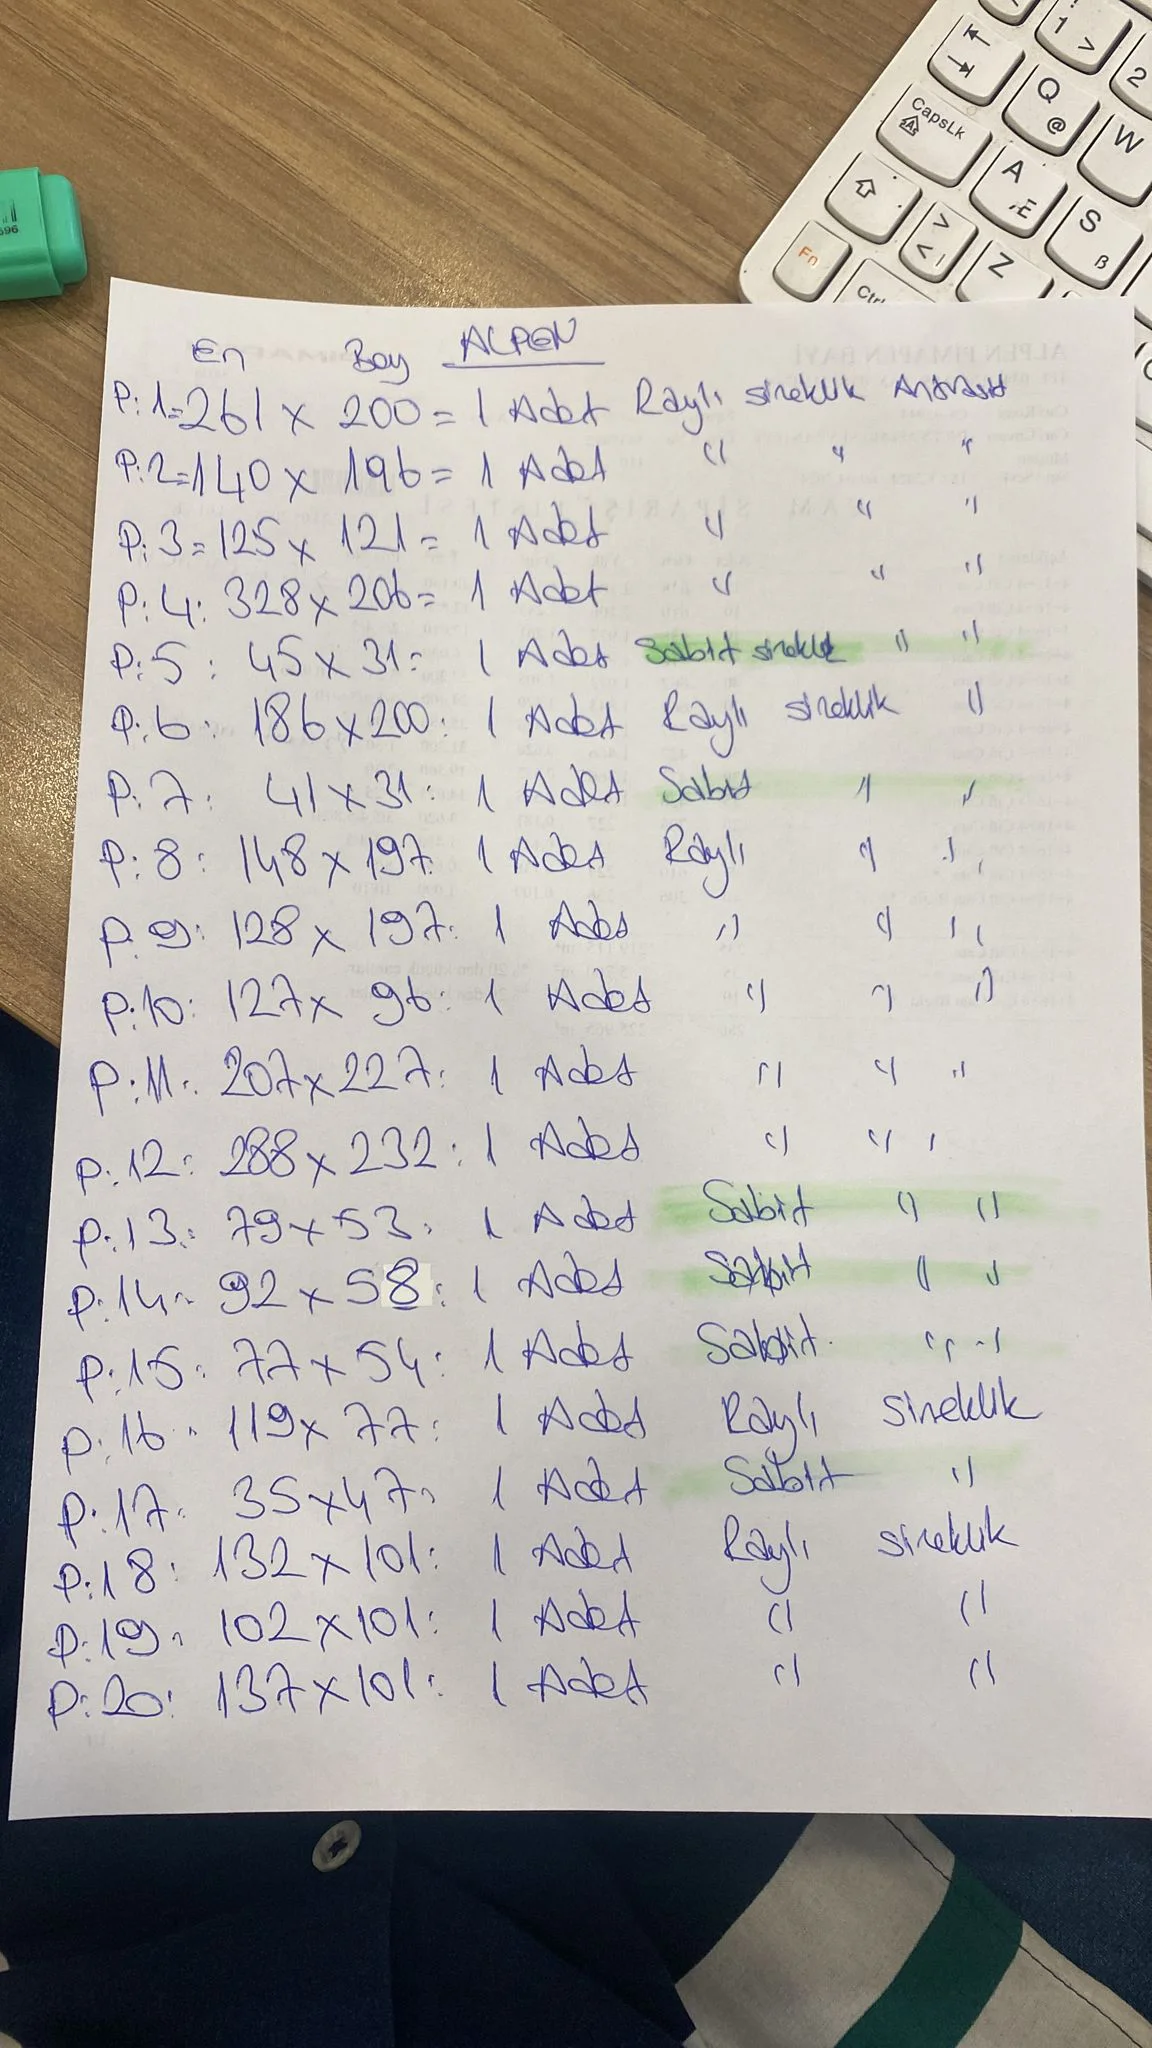 En Boy ALPEN
P:1=261 x 200= 1 Adet Raylı sineklik Antrasit
P:2=140 x 196= 1 Adet " " "
P:3=125 x 121= 1 Adet " " "
P:4: 328 x 206= 1 Adet " " "
P:5: 45 x 31: 1 Adet Sabit sineklik " "
P:6: 186 x 200: 1 Adet Raylı sineklik "
P:7: 41 x 31: 1 Adet Sabit " "
P:8: 148 x 197: 1 Adet Raylı " "
P:9: 128 x 197: 1 Adet " " "
P:10: 127 x 96: 1 Adet " " "
P:11: 207 x 227: 1 Adet " " "
P:12: 288 x 232: 1 Adet " " "
P:13: 79 x 53: 1 Adet Sabit " "
P:14: 92 x 58: 1 Adet Sabit " "
P:15: 77 x 54: 1 Adet Sabit " "
P:16: 119 x 77: 1 Adet Raylı sineklik
P:17: 35 x 47: 1 Adet Sabit "
P:18: 132 x 101: 1 Adet Raylı sineklik
P:19: 102 x 101: 1 Adet " "
P:20: 137 x 101: 1 Adet " "
1 >
2
Q @
W
CapsLk
A Æ
S ß
> < |
Z
Fn
Ctrl
596